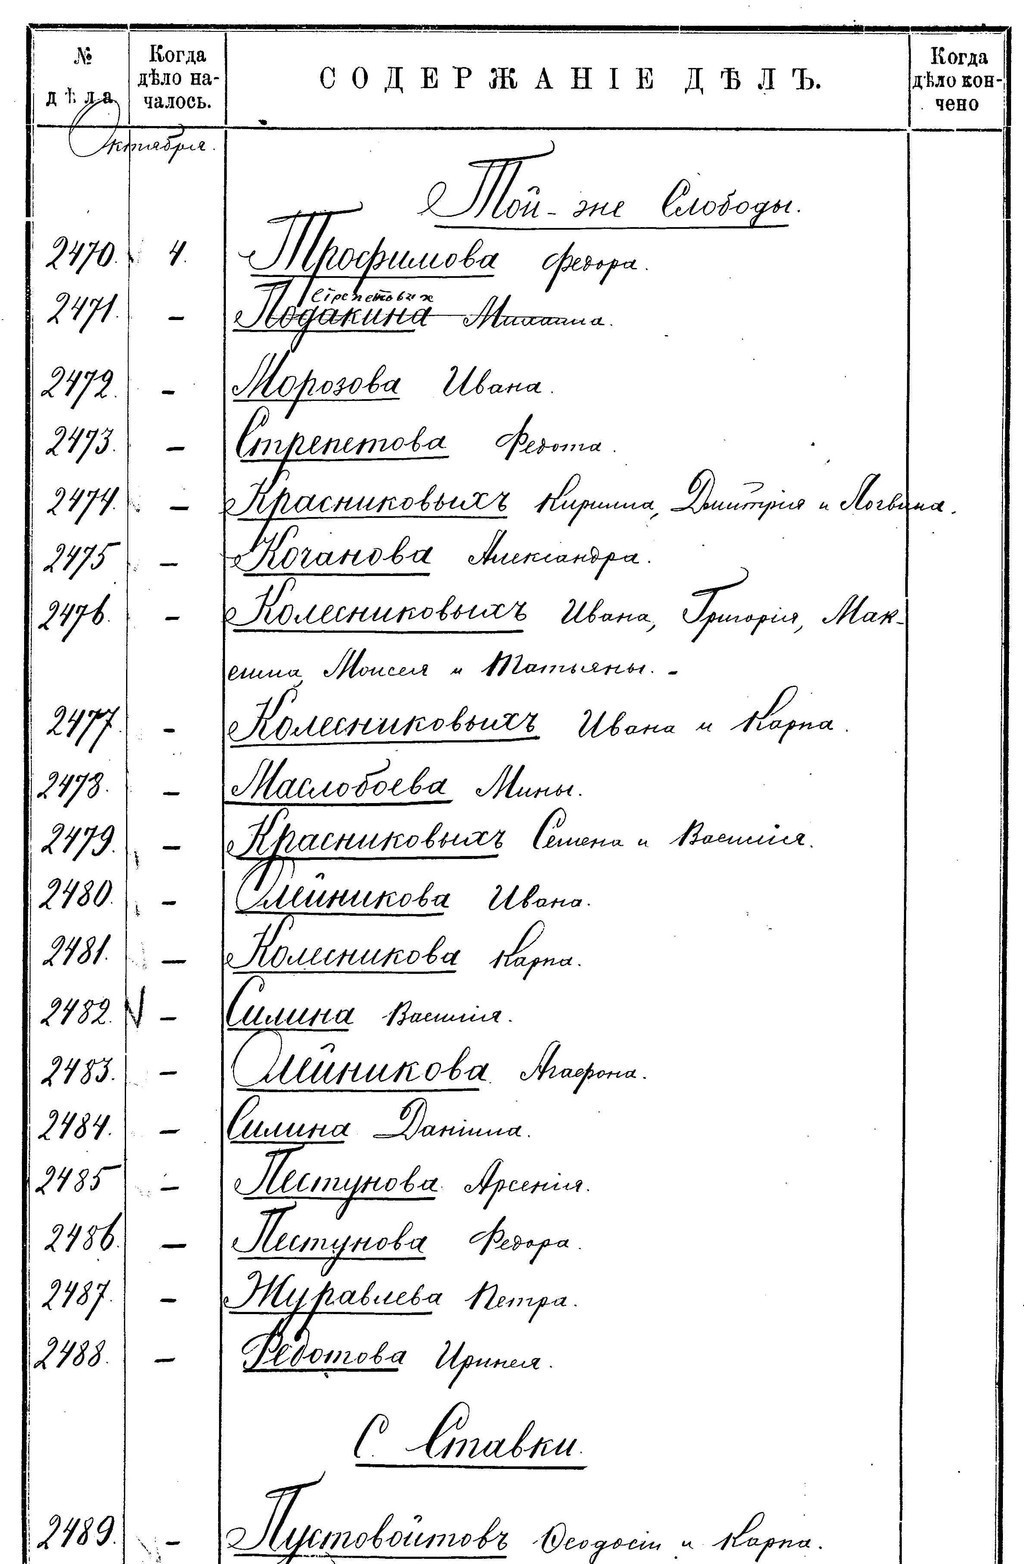 № дѣла
Когда дѣло на-
чалось.
СОДЕРЖАНІЕ ДѢЛЪ.
Когда дѣло кон-
чено
Октября.
Той-же Слободы.
2470. 4. Трофимова Федора.
Стрепетовых
2471. - Лодакина
2472. - Морозова Ивана.
2473. - Стрепетова Федота.
2474. - Красниковыхъ Кирилла, Дмитрія и Логвина.
2475 - Коганова Александра.
2476. - Колесниковыхъ Ивана, Григорія, Мак-
сима, Моисея и Татьяны. -
2477 - Колесниковыхъ Ивана и Карпа.
2478. - Маслобоева Мины.
2479. - Красниковыхъ Семена и Василія.
2480. - Олейникова Ивана.
2481. - Колесникова Карпа.
2482. √ - Силина Василія.
2483. - Олейникова Агафона.
2484. - Силина Даніила.
2485 - Пестунова Арсенія.
2486. - Пестунова Федора.
2487. - Журавлева Петра.
2488. - Федотова Иринея.
С. Ставки.
2489. - Пустовойтовъ Ѳеодосія и Карпа.